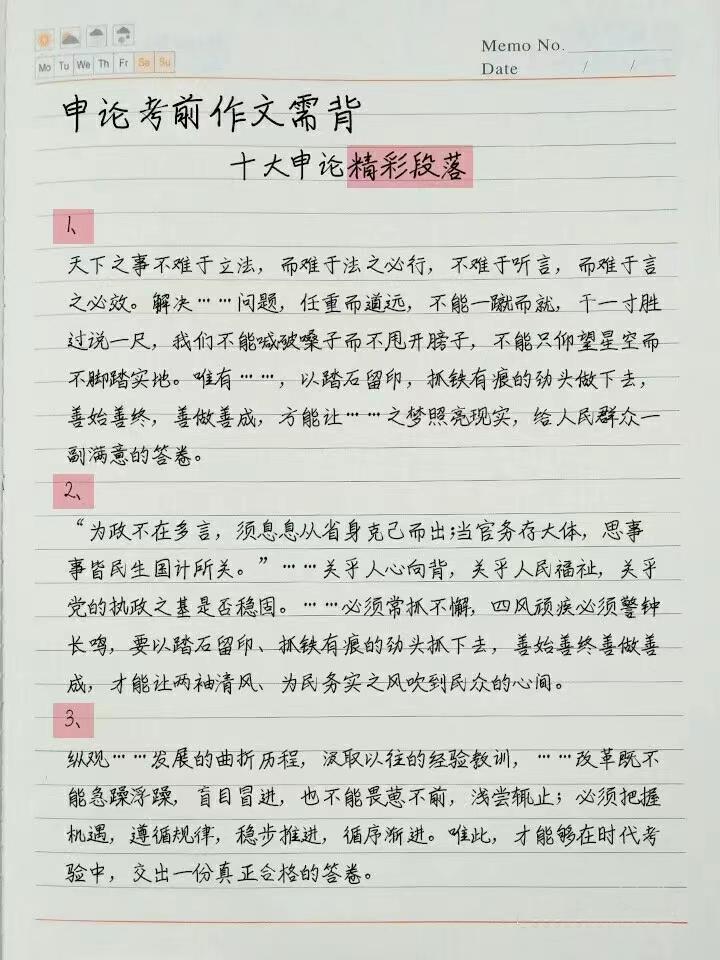 Mo Tu We Th Fr Sa Su
Memo No.
Date / /
申论考前作文需背
十大申论精彩段落
1、
天下之事不难于立法，而难于法之必行，不难于听言，而难于言
之必效。解决……问题，任重而道远，不能一蹴而就，干一寸胜
过说一尺，我们不能喊破嗓子而不甩开膀子，不能只仰望星空而
不脚踏实地。唯有……，以踏石留印，抓铁有痕的劲头做下去，
善始善终，善做善成，方能让……之梦照亮现实，给人民群众一
副满意的答卷。
2、
“为政不在多言，须息息从省身克己而出；当官务存大体，思事
事皆民生国计所关。”……关乎人心向背，关乎人民福祉，关乎
党的执政之基是否稳固。……必须常抓不懈，四风顽疾必须警钟
长鸣，要以踏石留印、抓铁有痕的劲头抓下去，善始善终善做善
成，才能让两袖清风、为民务实之风吹到民众的心间。
3、
纵观……发展的曲折历程，汲取以往的经验教训，……改革既不
能急躁浮躁，盲目冒进，也不能畏葸不前，浅尝辄止；必须把握
机遇，遵循规律，稳步推进，循序渐进。唯此，才能够在时代考
验中，交出一份真正合格的答卷。